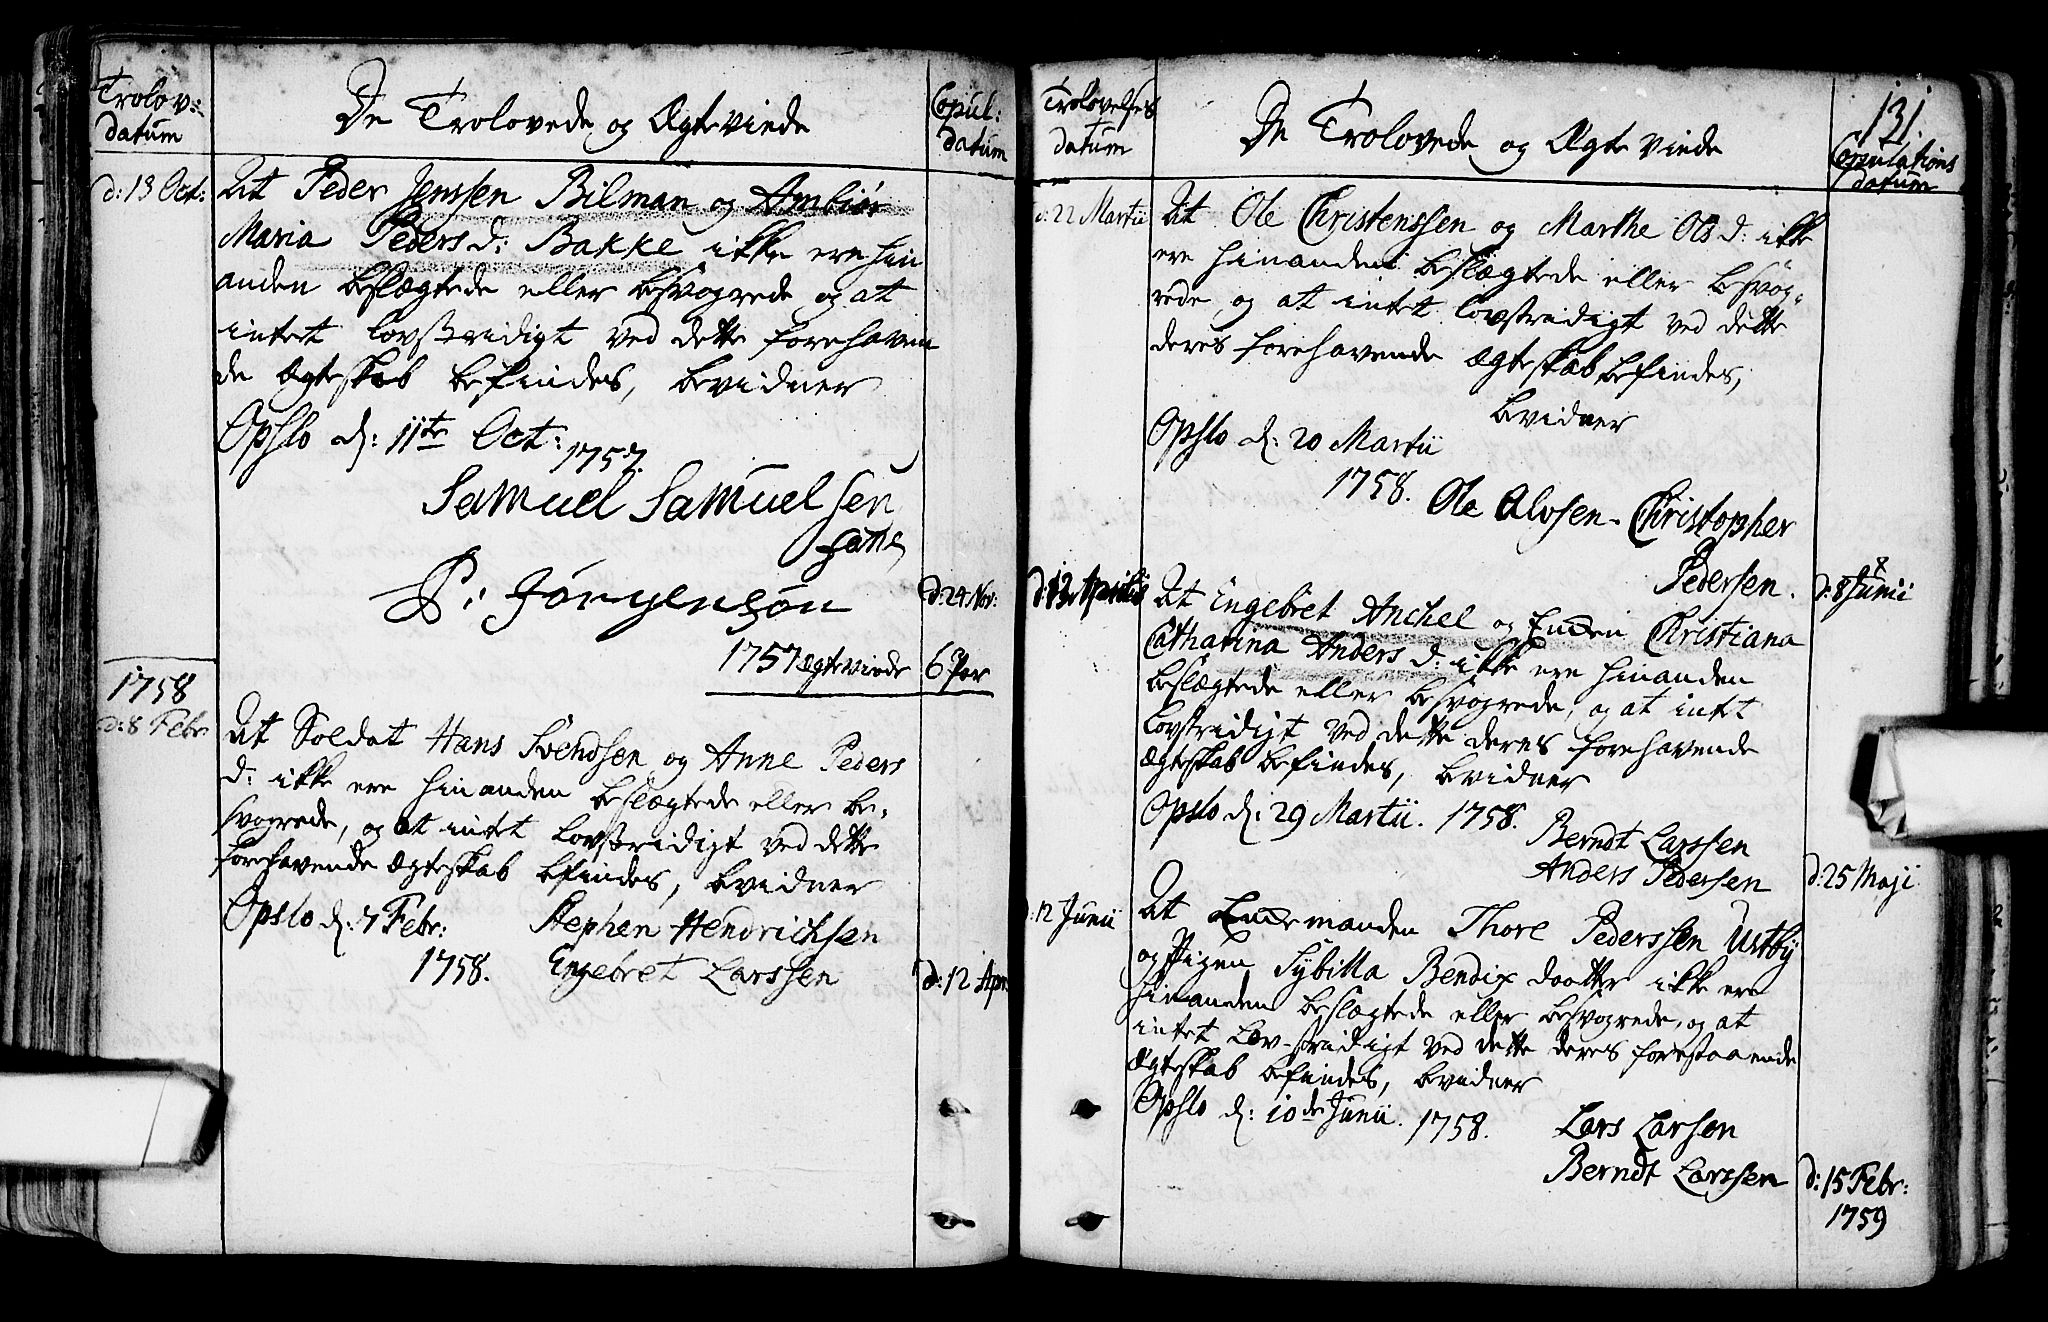 Trolov:
datum
De Trolovede og Ægteviede
Copul:
datum
d: 13 Oct:
At Peder Jenssen Bilman og Ambiør
Maria Peders d: Bakke ikke ere hin
anden beslægtede eller besvogrede og at
intet lovstridigt ved dette forehaven
de Ægteskab befindes, bevidner
Opslo d: 11te Oct: 1757.
Samuel Samuelsen
P: Jörgensøn
d: 24 Nov:
1757 Ægteviede 6 Par
1758
d: 8 Febr.
At Soldat Hans Svendsen og Anne Peders
d: ikke ere hinanden beslægtede eller be-
svogrede, og at intet lovstridigt ved dette
forehavende Ægteskab befindes, bevidner
Opslo d: 7 Febr: Stephen Hendrichsen
1758. Engebret Larssen
d: 12 Apr.
131.
Trolovelses
datum
De Trolovede og Ægteviede
Copulations
datum
d: 22 Martii
At Ole Christenssen og Marthe Ols d: ikke
ere hinanden beslægtede eller besvog-
rede og at intet lovstridigt ved dette
deres forehavende Ægteskab befindes,
bevidner
Opslo d: 20 Martii
1758. Ole Alvsen. Christopher
Pedersen.
d: 8 Junii
d: 13 Aprilis
At Engebret Anchel og Enken Christiana
Catharina Anders d: ikke ere hinanden
beslægtede eller besvogrede, og at intet
lovstridigt ved dette deres forehavende
Ægteskab befindes, bevidner
Opslo d: 29 Martii. 1758.
Berndt Larssen
Anders Pedersen
d: 25 Maji
d: 12 Junii
At Enkemanden Thore Pederssen Ustby
og Pigen Sybilla Bendix daatter ikke ere
hinanden beslægtede eller besvogrede, og at
intet Lov-stridigt ved dette deres forestaaende
Ægteskab befindes, bevidner
Opslo d: 10de Junii. 1758.
Lars Larsen
Berndt Larssen
d: 15 Febr:
1759